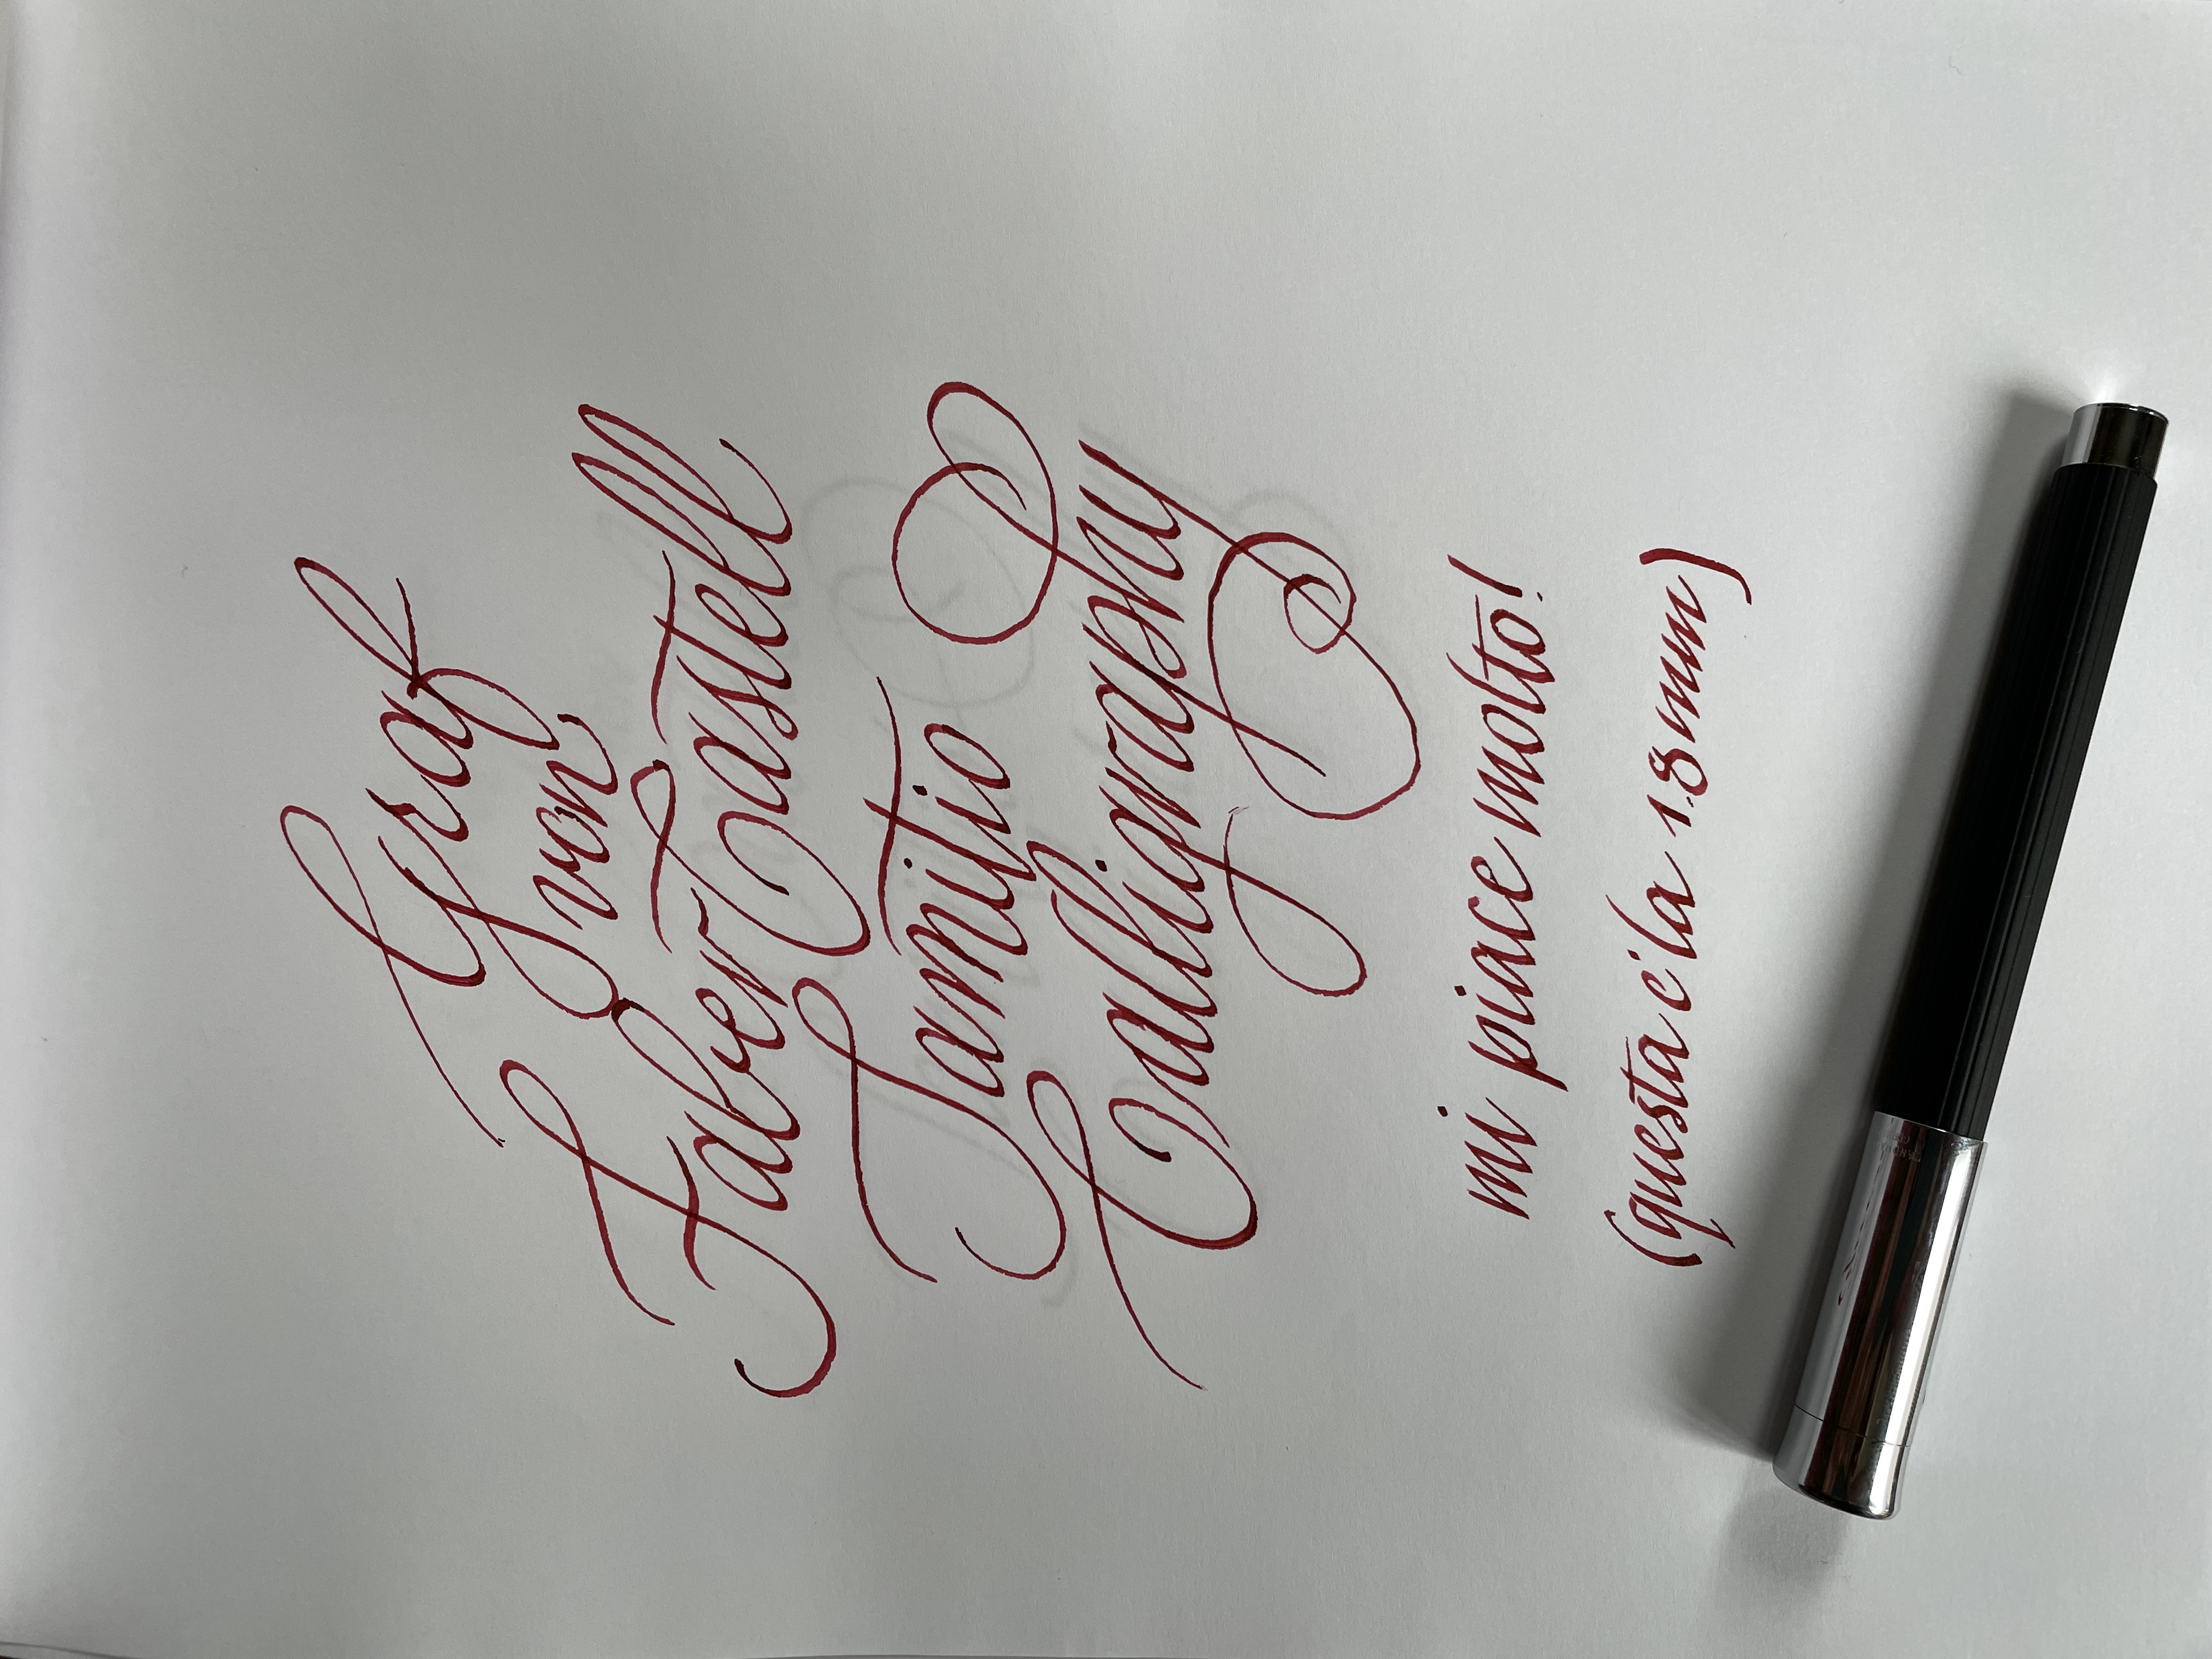 Graf
von
Faber Castell
Tamitio
Calligraphy
mi piace molto!
(questa è la 1.8 mm)